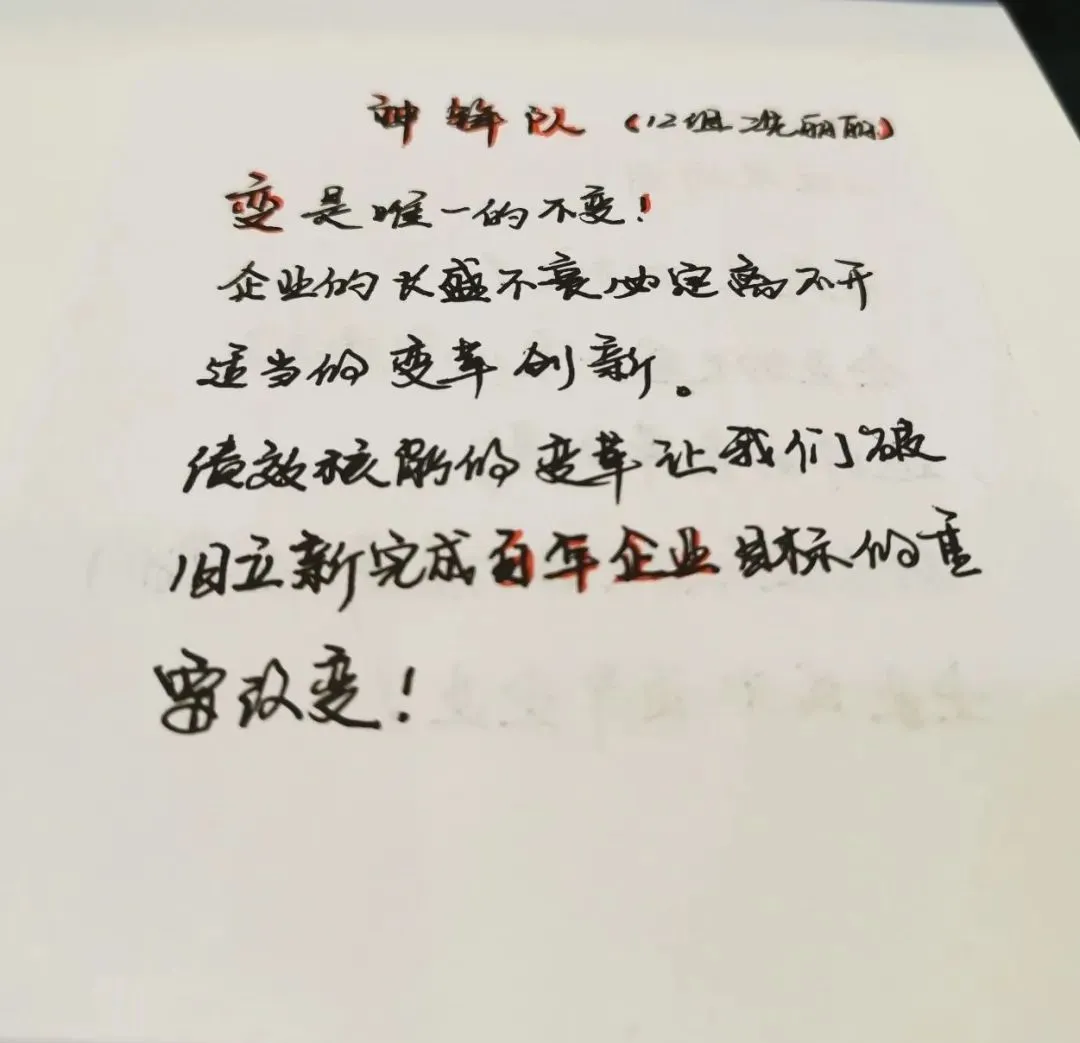 神锋队（12组冼丽丽）
变是唯一的不变！
企业的长盛不衰必定离不开
适当的变革创新。
绩效核能的变革让我们破
旧立新完成百年企业目标的重
要改变！